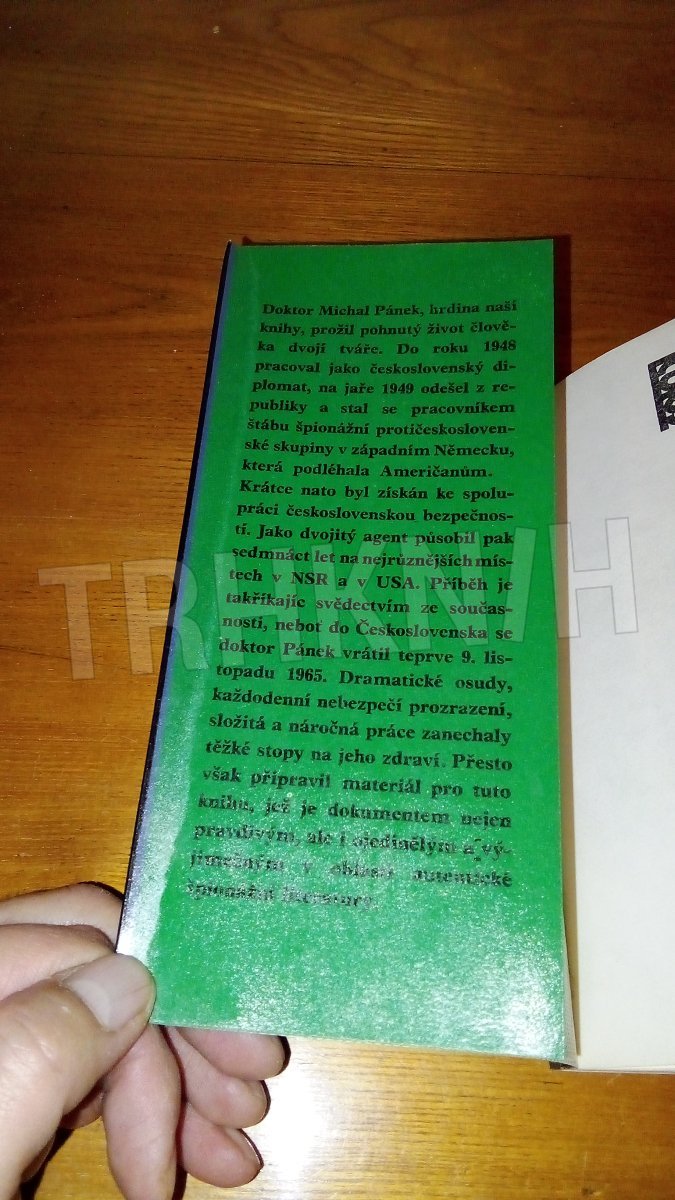 Doktor Michal Pánek, hrdina naší
knihy, prožil pohnutý život člově-
ka dvojí tváře. Do roku 1948
pracoval jako československý di-
plomat, na jaře 1949 odešel z re-
publiky a stal se pracovníkem
štábu špionážní protičeskosloven-
ské skupiny v západním Německu,
která podléhala Američanům.
Krátce nato byl získán ke spolu-
práci československou bezpečnos-
tí. Jako dvojitý agent působil pak
sedmnáct let na nejrůznějších mís-
tech v NSR a v USA. Příběh je
takřikajíc svědectvím ze součas-
nosti, neboť do Československa se
doktor Pánek vrátil teprve 9. lis-
topadu 1965. Dramatické osudy,
každodenní nebezpečí prozrazení,
složitá a náročná práce zanechaly
těžké stopy na jeho zdraví. Přesto
však připravil materiál pro tuto
knihu, jež je dokumentem nejen
pravdivým, ale i ojedinělým a vý-
jimečným v oblasti autentické
špionážní literatury.
TRHKNIH